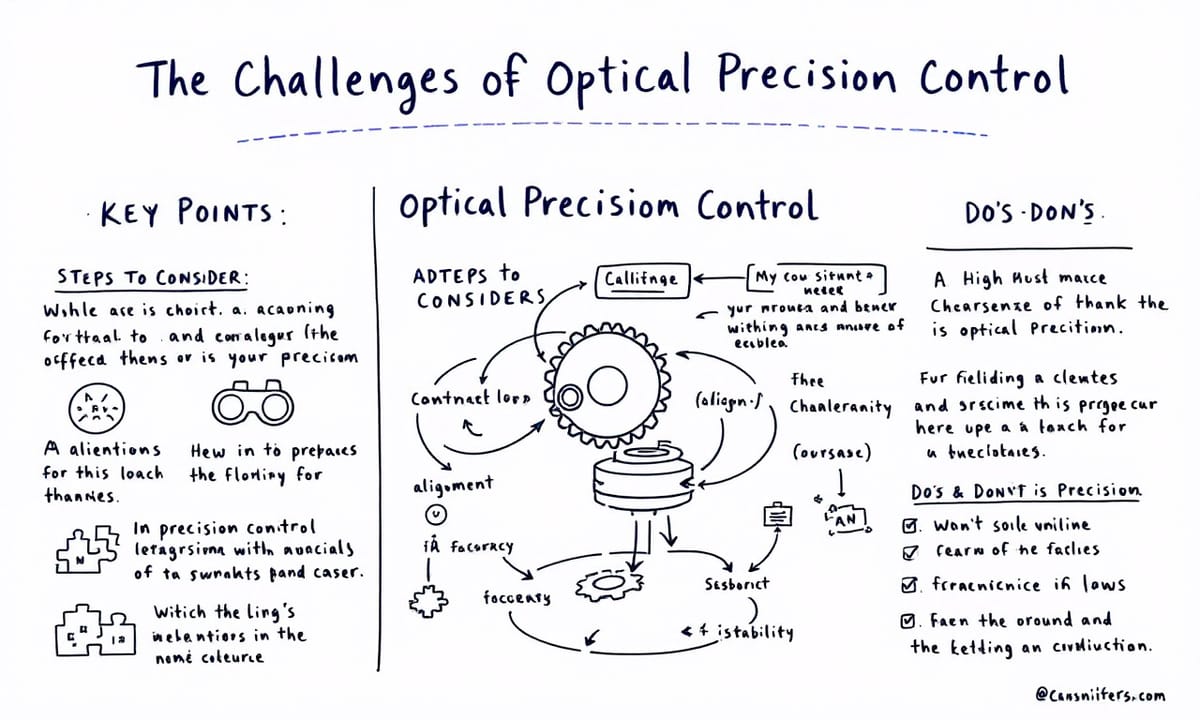 The Challenges of Optical Precision Control
KEY POINTS:
STEPS TO CONSIDER:
Wshle ace is choict. a. acaoning
for thaal to . and corralegur (the
offeca thens or is your precisom
A alientions
for this loach
thannies.
Hew in to prepaies
the Floriiny for
In precision conitrol
letagrsiona with auacials
of ta swnahts pand caser.
Witich the Ling's
in the
nomé coleurce
Optical Precisiom Control
ADTEPS to
CONSIDERS
Callitnge
My cou situnt
neter
yur and bener
withing ancs of
ecublea
Contnact lors
aligoment
iÅ facoracy
foccenty
(align·s)
fhee
Chanleranity
(oursase)
AN
Sesborict
istability
DO'S · DON'S.
A High Must mance
Chearsenze of thank the
is optical Precitiorn.
Fur fieliding a clewtes
and srscime th is prrgecur
here upe a a tanch for
a
Do's & Donv't is Precision
Won't soile vniline
cearn of he faclies
frraenicnice ih laws
Faen the oround and
the ketding an
@cansniifers.com